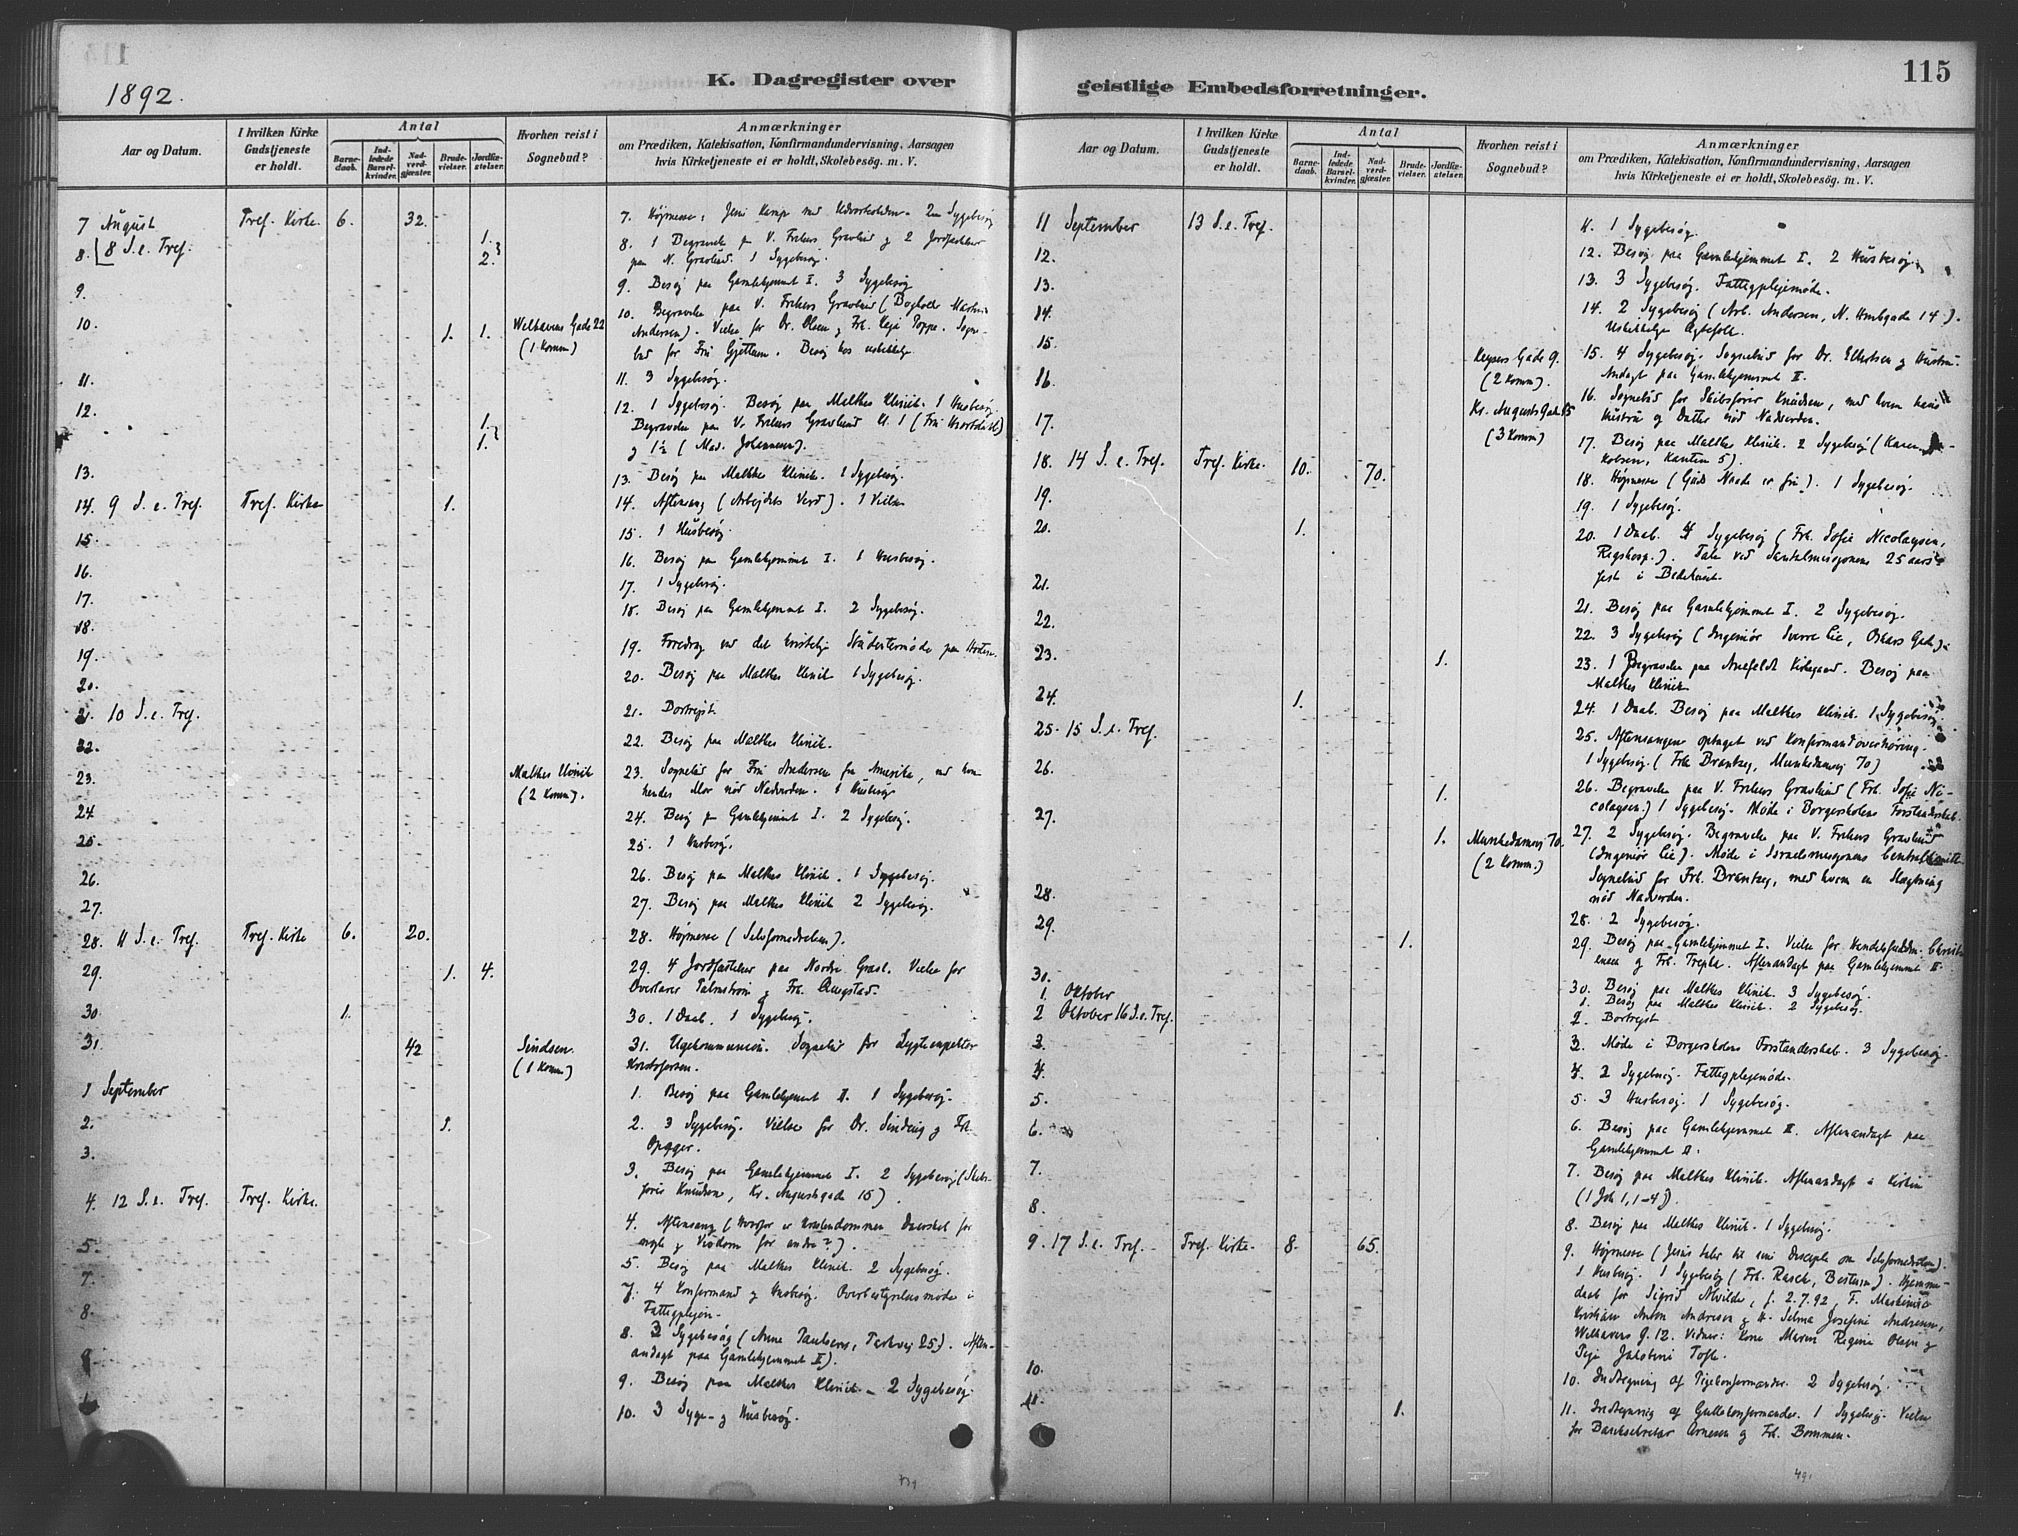 115
1892.
K. Dagregister over geistlige Embedsforretninger.
Aar og Datum.
I hvilken Kirke Gudstjeneste er holdt.
Antal
Barnedaab.
Indledede Barselkvinder.
Nadverdgjæster.
Brudevielser.
Jordfæstelser.
Hvorhen reist i Sognebud?
Anmærkninger
om Prædiken, Katekisation, Konfirmandundervisning, Aarsagen
hvis Kirketjeneste ei er holdt, Skolebesøg. m. V.
7 August Tref. Kirke 6. 32. 7. Højmesse: 2 Sygebesøg
8. 8 S. e. Tref. 1. 2. 8. 1 Begravelse V. Frelsers Gravlund og 2 Jordfæstelser
paa N. Gravlund. 1 Sygebesøg.
9. 9. Besøg paa Gamlehjemmet I. 3 Sygebesøg
10. 1. 1. Welhavens Gade 22 10. Begravelse paa V. Frelsers Gravlund (
(1 Komm) Andersen). Vielse for Dr. Olsen og Frk. Poppe. Sogne-
bud for Fru
11. 11. 3 Sygebesøg.
12. 1. 1. 12. 1 Sygebesøg. Besøg paa Malthes Klinik. 1 Husbesøg
Begravelse paa V. Frelsers Gravlund Kl. 1 (Fru
og 1½ (Mad. Johannesen).
13. 13. Besøg paa Malthes Klinik. 1 Sygebesøg.
14. 9 S. e. Tref. Tref. Kirke 1. 14. Aftensang (Arbejdets Verd). 1 Vielse
15. 15. 1 Husbesøg.
16. 16. Besøg paa Gamlehjemmet I. 1 Husbesøg.
17. 17. 1 Sygebesøg.
18. 18. Besøg paa Gamlehjemmet I. 2 Sygebesøg.
19. 19. Foredrag ved det kristelige Studentermøde paa Horten.
20. 20. Besøg paa Malthes Klinik 1 Sygebesøg.
21. 10 S. e. Tref. 21. Bortrejst.
22. 22. Besøg paa Malthes Klinik.
23. Malthes Klinik 23. Sognebud for Fru Andersen fra Amerika, med hvem
(2 Komm). hendes Mor nød Nadverden. 1 Husbesøg
24. 24. Besøg paa Gamlehjemmet I. 2 Sygebesøg.
25. 25. 1 Husbesøg.
26. 26. Besøg paa Malthes Klinik. 1 Sygebesøg.
27. 27. Besøg paa Malthes Klinik 2 Sygebesøg.
28. 11 S. e. Tref. Tref. Kirke 6. 20. 28. Højmesse (Selvfornedrelsen).
29. 1. 4. 29. 4 Jordfæstelser paa Nordre Gravl. Vielse for
Overlærer Palmstrøm og Frk.
30. 1. 30. 1 Daab. 1 Sygebesøg.
31. 42 31. Ugekommunion. Sognebud for
(1 Komm) Kristofersen.
1 September 1. Besøg paa Gamlehjemmet II. 1 Sygebesøg.
2. 1. 2. 3 Sygebesøg. Vielse for Dr. Sinding og Frk.
3. 3. Besøg paa Gamlehjemmet I. 2 Sygebesøg (Skibs-
fører Knudsen, Kr. Augustsgade 15).
4. 12 S. e. Tref. Tref. Kirke. 4. Aftensang (Hvorfor er Kristendommen Daarskab for
nogle og Visdom for andre?).
5. 5. Besøg paa Malthes Klinik. 2 Sygebesøg.
7. 7. 4 Konfirmand og Husbesøg. Overbestyrelsesmøde i
Fattigplejen.
8. 8. 3 Sygebesøg (Anne Paulsens, Parkvej 25). Aften-
andagt paa Gamlehjemmet II).
9 9. Besøg paa Malthes Klinik – 2 Sygebesøg.
10. 3 Syge- og Husbesøg.
Aar og Datum.
I hvilken Kirke Gudstjeneste er holdt.
Antal
Barnedaab.
Indledede Barselkvinder.
Nadverdgjæster.
Brudevielser.
Jordfæstelser.
Hvorhen reist i Sognebud?
Anmærkninger
om Prædiken, Katekisation, Konfirmandundervisning, Aarsagen
hvis Kirketjeneste ei er holdt, Skolebesøg. m. V.
11 September 13 S. e. Tref. 11. 1 Sygebesøg
12. 12. Besøg paa Gamlehjemmet I. 2 Husbesøg.
13. 13. 3 Sygebesøg. Fattigplejemøde.
14. 14. 2 Sygebesøg (Arb. Andersen, N. 14).
Uskikkelige Ægtefolk.
15. Keysers Gade 9. 15. 4 Sygebesøg. Sognebud for Dr. Ellertsen og Hustru
(2 Komm). Andagt paa Gamlehjemmet II.
16. Kr. Augusts Gade 15 16. Sognebud for Skibsfører Knudsen, med hvem hans
(3 Komm) Hustru og Datter nød Nadverden.
17. 17. Besøg paa Malthes Klinik. 2 Sygebesøg (Karen Ja-
kobsen, 5).
18. 14 S. e. Tref. Tref. Kirke. 10. 70. 18. Højmesse (Guds Naade er fri). 1 Sygebesøg.
19. 19. 1 Sygebesøg.
20. 1. 20. 1 Daab. 4 Sygebesøg (Frk. Sofie Nicolaysen,
Rigshosp.). Tale ved Santalmissjonens 25 aars
fest i Bedehuset.
21. 21. Besøg paa Gamlehjemmet I. 2 Sygebesøg.
22. 22. 3 Sygebesøg (Ingeniør Sverre Lie, Oskars Gade).
23. 1. 23. 1 Begravelse paa Kirkegaard. Besøg paa
Malthes Klinik
24. 1. 24. 1 Daab. Besøg paa Malthes Klinik. 1 Sygebesøg.
25. 15 S. e. Tref. 25. Aftensangen optaget ved Konfirmandoverhøring.
1 Sygebesøg (Frk. Brantzeg, Munkedamsvej 70)
26. 1. 26. Begravelse paa V. Frelsers Gravlund (Frk. Sofie Ni-
colaysen.) 1 Sygebesøg. Møde i Borgerskolens Forstanderskab.
27. 1. Munkedamsvej 70. 27. 2 Sygebesøg. Begravelse paa V. Frelsers Gravlund
(2 Komm.) (Ingeniør Lie). Møde i Israelsmissjonens
Sognebud for Frk. Brantzeg, med hvem en Slægtning
nød Nadverden.
28. 28. 2 Sygebesøg.
29. 1. 29. Besøg paa Gamlehjemmet I. Vielse for
og Frk. Trepka. Aftenandagt paa Gamlehjemmet II.
30. 30. Besøg paa Malthes Klinik. 3 Sygebesøg.
1. Oktober 1. Besøg paa Malthes Klinik. 2 Sygebesøg.
2 Oktober 16 S. e. Tref. 2. Bortrejst
3. 3. Møde i Borgerskolens Forstanderskab. 3 Sygebesøg.
4. 4. 2 Sygebesøg. Fattigplejemøde.
5. 5. 3 Husbesøg. 1 Sygebesøg.
6. 6. Besøg paa Gamlehjemmet II. Aftenandagt paa
Gamlehjemmet II.
7. 7. Besøg paa Malthes Klinik. Aftenandagt i Kirken
(1 Joh 1, 1–4).
8. 8. Besøg paa Malthes Klinik. 1 Sygebesøg.
9. 17 S. e. Tref. Tref. Kirke. 8. 65. 9. Højmesse (Jesus taler til sine Disciple om Selvfornedrelsen).
1 Husbesøg. 1 Sygebesøg (Frk. Rasch, ). Hjemme-
daab for Sigrid Alvilde, f. 2.7.92, F. Maskinist
Kristian Anton Andresen og H. Selma Josefine Andresen,
Welhavens g. 12. Vidner: Kone Maren Regine Olsen og
Pige Tofte.
10. 10. Indtegning af Pigekonfirmander. 2 Sygebesøg.
11. 1. 11. Indtegning af Guttekonfirmander. 1 Sygebesøg. Vielse
for Banksekretær Arnesen og Frk. Bommen.